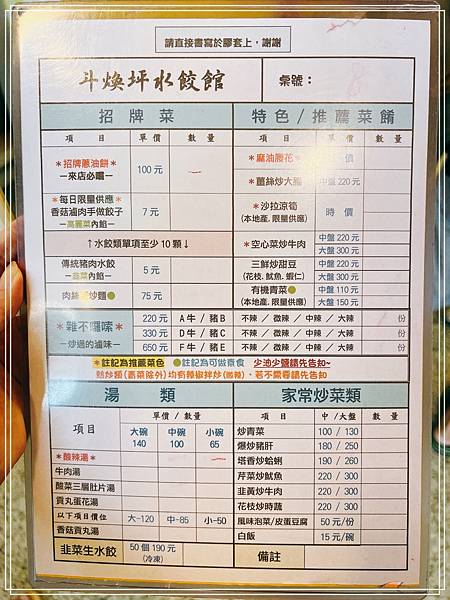 請直接書寫於膠套上，謝謝
斗煥坪水餃館 桌號：
招牌菜
項目 單價 數量
*招牌蔥油餅*
－來店必嚐－ 100元
*每日限量供應*
香菇滷肉手做餃子
－高麗菜內餡－ 7元
↑水餃類單項至少10顆↓
傳統豬肉水餃
－韭菜內餡－ 5元
肉絲 炒麵● 75元
*雜不隴嗦*
－炒過的滷味－
220元 A牛／豬B 不辣／微辣／中辣／大辣 份
330元 D牛／豬C 不辣／微辣／中辣／大辣
650元 F牛／豬E 不辣／微辣／中辣／大辣 份
特色/推薦菜餚
項目 單價 數量
*麻油腰花* 價
*薑絲炒大腸 中盤220元
*沙拉涼筍
(本地產,限量供應) 時價
*空心菜炒牛肉 中盤220元
大盤300元
三鮮炒甜豆
(花枝.魷魚.蝦仁) 中盤220元
大盤300元
有機青菜●
(本地產,限量供應) 中盤110元
大盤150元
*註記為推薦菜色 ●註記為可做素食 少油少鹽請先告知~
熱炒類(素菜除外)均有辣椒拌炒(微辣)，若不需要請先告知~
湯類
項目 單價／數量
大碗 中碗 小碗
140 100 65
*酸辣湯*
牛肉湯
酸菜三層肚片湯
貢丸蛋花湯
以下項目價位 大-120 中-85 小-50
香菇貢丸湯
韭菜生水餃 50個190元
(冷凍)
家常炒菜類
項目 中/大盤 數量
炒青菜 100 / 130
爆炒豬肝 180 / 250
塔香炒蛤蜊 190 / 260
芹菜炒魷魚 220 / 300
韭黃炒牛肉 220 / 300
花枝炒時蔬 220 / 300
風味泡菜/皮蛋豆腐 50元/份
白飯 15元/碗
備註